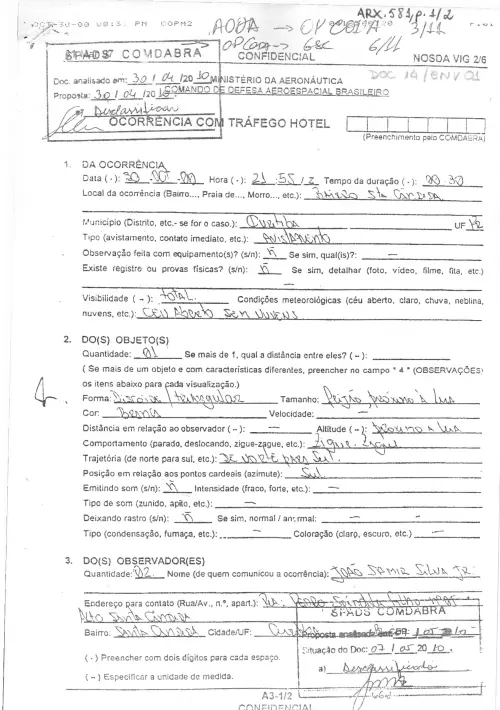 ARX. 581, p. 1/2
-30-00 08:31 PM COPM2
AODA → 3/11
OPCODA → GSC 6/11
SPADS COMDABRA
CONFIDENCIAL
NOSDA VIG 2/6
Doc. analisado em: 30/04/2010
MINISTÉRIO DA AERONÁUTICA
DOC 14/ENV 01
Proposta: 30/04/2010
COMANDO DE DEFESA AEROESPACIAL BRASILEIRO
Desclassificar
OCORRÊNCIA COM TRÁFEGO HOTEL
(Preenchimento pelo COMDABRA)
1. DA OCORRÊNCIA
Data (·): 30 OUT 00 Hora (·): 21:55/Z Tempo da duração (·): 00 30
Local da ocorrência (Bairro..., Praia de..., Morro..., etc.): Bairro Sta Cândida
Município (Distrito, etc.- se for o caso.): Curitiba UF PR
Tipo (avistamento, contato imediato, etc.): Avistamento
Observação feita com equipamento(s)? (s/n): N Se sim, qual(is)?: —
Existe registro ou provas físicas? (s/n): N Se sim, detalhar (foto, vídeo, filme, fita, etc.)
—
Visibilidade ( ~ ): total Condições meteorológicas (céu aberto, claro, chuva, neblina,
nuvens, etc.): Céu Aberto Sem nuvens
2. DO(S) OBJETO(S)
Quantidade: 01 Se mais de 1, qual a distância entre eles? ( ~ ):
( Se mais de um objeto e com características diferentes, preencher no campo " 4 " (OBSERVAÇÕES)
os itens abaixo para cada visualização.)
Forma: Discoide / triangular Tamanho: Feijão próximo à Lua
Cor: Velocidade: —
Distância em relação ao observador ( ~ ): — Altitude ( ~ ): próximo à Lua
Comportamento (parado, deslocando, zigue-zague, etc.): Zigue-zague
Trajetória (de norte para sul, etc.): De norte para Sul.
Posição em relação aos pontos cardeais (azimute): Sul
Emitindo som (s/n): N Intensidade (fraco, forte, etc.): —
Tipo de som (zunido, apito, etc.): —
Deixando rastro (s/n): N Se sim, normal / anormal: —
Tipo (condensação, fumaça, etc.): — Coloração (claro, escuro, etc.) —
3. DO(S) OBSERVADOR(ES)
Quantidade: 02 Nome (de quem comunicou a ocorrência): João Samir Silva Jr.
Endereço para contato (Rua/Av., n.º, apart.): Rua: Filho nº 85
Alto Santa Cândida
SPADS COMDABRA
Bairro: Santa Cândida Cidade/UF:
Proposta analisada em: /05/2010
( · ) Preencher com dois dígitos para cada espaço.
Situação do Doc: 07/05/2010.
( ~ ) Especificar a unidade de medida.
a) Desclassificado
A3-1/2
CONFIDENCIAL